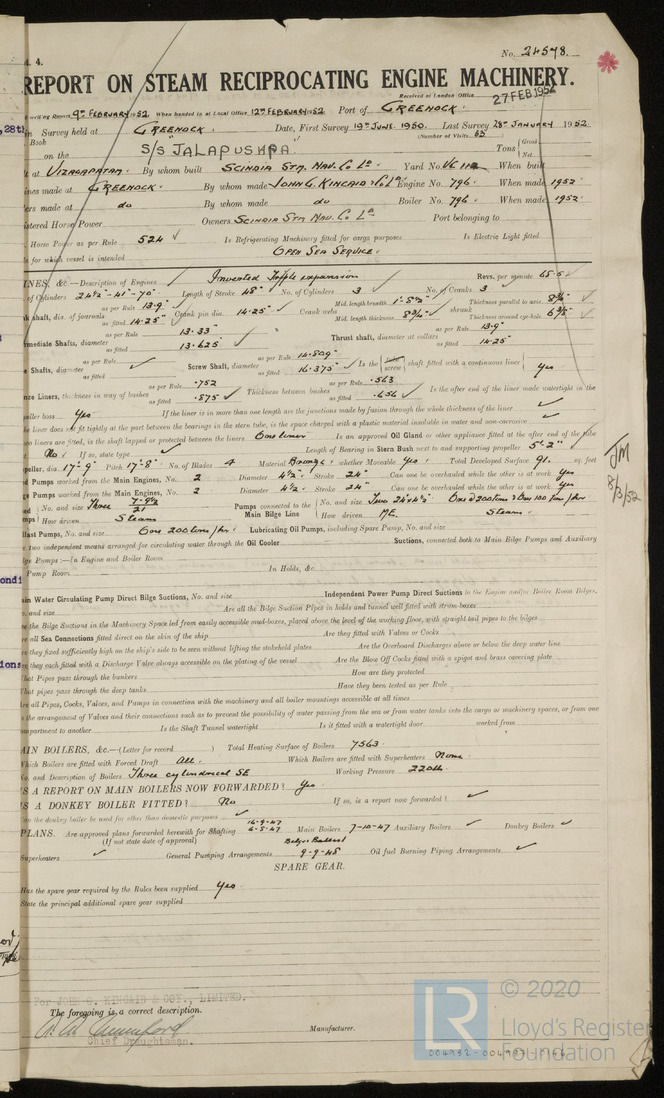 No. 24578.
REPORT ON STEAM RECIPROCATING ENGINE MACHINERY.
Received at London Office 27 FEB 1952
writing Report 9th FEBRUARY 1952 When handed in at Local Office 12th FEBRUARY 1952 Port of GREENOCK.
in Survey held at GREENOCK. Date, First Survey 19th JUNE 1950. Last Survey 28th JANUARY 1952.
Book (Number of Visits 65
on the S/S "JALAPUSHPA. Tons Gross Net
at VIZAGAPATAM. By whom built SCINDIA STM. NAV. Co Ld Yard No. VC 112 When built
ines made at GREENOCK. By whom made JOHN G. KINCAID & Co Ld Engine No. 796. When made 1952
ers made at do By whom made do Boiler No. 796. When made 1952.
istered Horse Power Owners SCINDIA STM NAV. Co Ld Port belonging to
Horse Power as per Rule 524 Is Refrigerating Machinery fitted for cargo purposes Is Electric Light fitted
de for which vessel is intended OPEN SEA SERVICE.
INES, &c.—Description of Engines Inverted Triple expansion Revs. per minute 65.5
of Cylinders 24½"-41"-70" Length of Stroke 48" No. of Cylinders 3 No. of Cranks 3
nk shaft, dia. of journals as per Rule 13.9" as fitted 14.25" Crank pin dia. 14.25" Crank webs Mid. length breadth 1'-8½" Mid. length thickness 8¾" shrunk Thickness parallel to axis 8¾" Thickness around eye-hole 6⅜"
rmediate Shafts, diameter as per Rule 13.33" as fitted 13.625" Thrust shaft, diameter at collars as per Rule 13.9" as fitted 14.25
e Shafts, diameter as per Rule as fitted Screw Shaft, diameter as per Rule 14.809" as fitted 16.375" Is the screw shaft fitted with a continuous liner Yes
nze Liners, thickness in way of bushes as per Rule .752 as fitted .875 Thickness between bushes as per Rule .563 as fitted .656 Is the after end of the liner made watertight in the
peller boss Yes If the liner is in more than one length are the junctions made by fusion through the whole thickness of the liner
he liner does not fit tightly at the part between the bearings in the stern tube, is the space charged with a plastic material insoluble in water and non-corrosive
wo liners are fitted, is the shaft lapped or protected between the liners One liner Is an approved Oil Gland or other appliance fitted at the after end of the tube
No If so, state type Length of Bearing in Stern Bush next to and supporting propeller 5'-2"
peller, dia. 17'-9" Pitch 17'-8" No. of Blades 4 Material Bronze whether Moveable Yes Total Developed Surface 91. sq. feet
d Pumps worked from the Main Engines, No. 2 Diameter 4½" Stroke 24" Can one be overhauled while the other is at work Yes
ge Pumps worked from the Main Engines, No. 2 Diameter 4½" Stroke 24" Can one be overhauled while the other is at work Yes
No. and size Three Pumps connected to the Main Bilge Line No. and size Two 24x4½ One @ 200 tons & One 100 tons/hr
How driven Steam How driven ME. Steam.
llast Pumps, No. and size One 200 tons/hr Lubricating Oil Pumps, including Spare Pump, No. and size
two independent means arranged for circulating water through the Oil Cooler Suctions, connected both to Main Bilge Pumps and Auxiliary
lge Pumps:—In Engine and Boiler Room
Pump Room In Holds, &c.
ain Water Circulating Pump Direct Bilge Suctions, No. and size Independent Power Pump Direct Suctions to the Engine and/or Boiler Room Bilges,
o. and size Are all the Bilge Suction Pipes in holds and tunnel well fitted with strum-boxes
re the Bilge Suctions in the Machinery Space led from easily accessible mud-boxes, placed above the level of the working floor, with straight tail pipes to the bilges
re all Sea Connections fitted direct on the skin of the ship Are they fitted with Valves or Cocks
re they fixed sufficiently high on the ship's side to be seen without lifting the stokehold plates Are the Overboard Discharges above or below the deep water line
re they each fitted with a Discharge Valve always accessible on the plating of the vessel Are the Blow Off Cocks fitted with a spigot and brass covering plate
hat Pipes pass through the bunkers How are they protected
hat pipes pass through the deep tanks Have they been tested as per Rule
re all Pipes, Cocks, Valves, and Pumps in connection with the machinery and all boiler mountings accessible at all times
s the arrangement of Valves and their connections such as to prevent the possibility of water passing from the sea or from water tanks into the cargo or machinery spaces, or from one
mpartment to another Is the Shaft Tunnel watertight Is it fitted with a watertight door worked from
AIN BOILERS, &c.—(Letter for record ) Total Heating Surface of Boilers 7563.
Which Boilers are fitted with Forced Draft All. Which Boilers are fitted with Superheaters None
No. and Description of Boilers Three cylindrical SE Working Pressure 220 lb
IS A REPORT ON MAIN BOILERS NOW FORWARDED? Yes.
IS A DONKEY BOILER FITTED? No If so, is a report now forwarded?
an the donkey boiler be used for other than domestic purposes
PLANS. Are approved plans forwarded herewith for Shafting 16-9-47 6-5-47 Main Boilers 7-10-47 Auxiliary Boilers Donkey Boilers
(If not state date of approval)
Superheaters General Pumping Arrangements 9-9-48 Oil fuel Burning Piping Arrangements
SPARE GEAR.
Has the spare gear required by the Rules been supplied Yes
State the principal additional spare gear supplied
JM
8/3/52
For JOHN G. KINCAID & COY., LIMITED.
The foregoing is a correct description.
Chief Draughtsman. Manufacturer.
LR © 2020
Lloyd's Register
Foundation